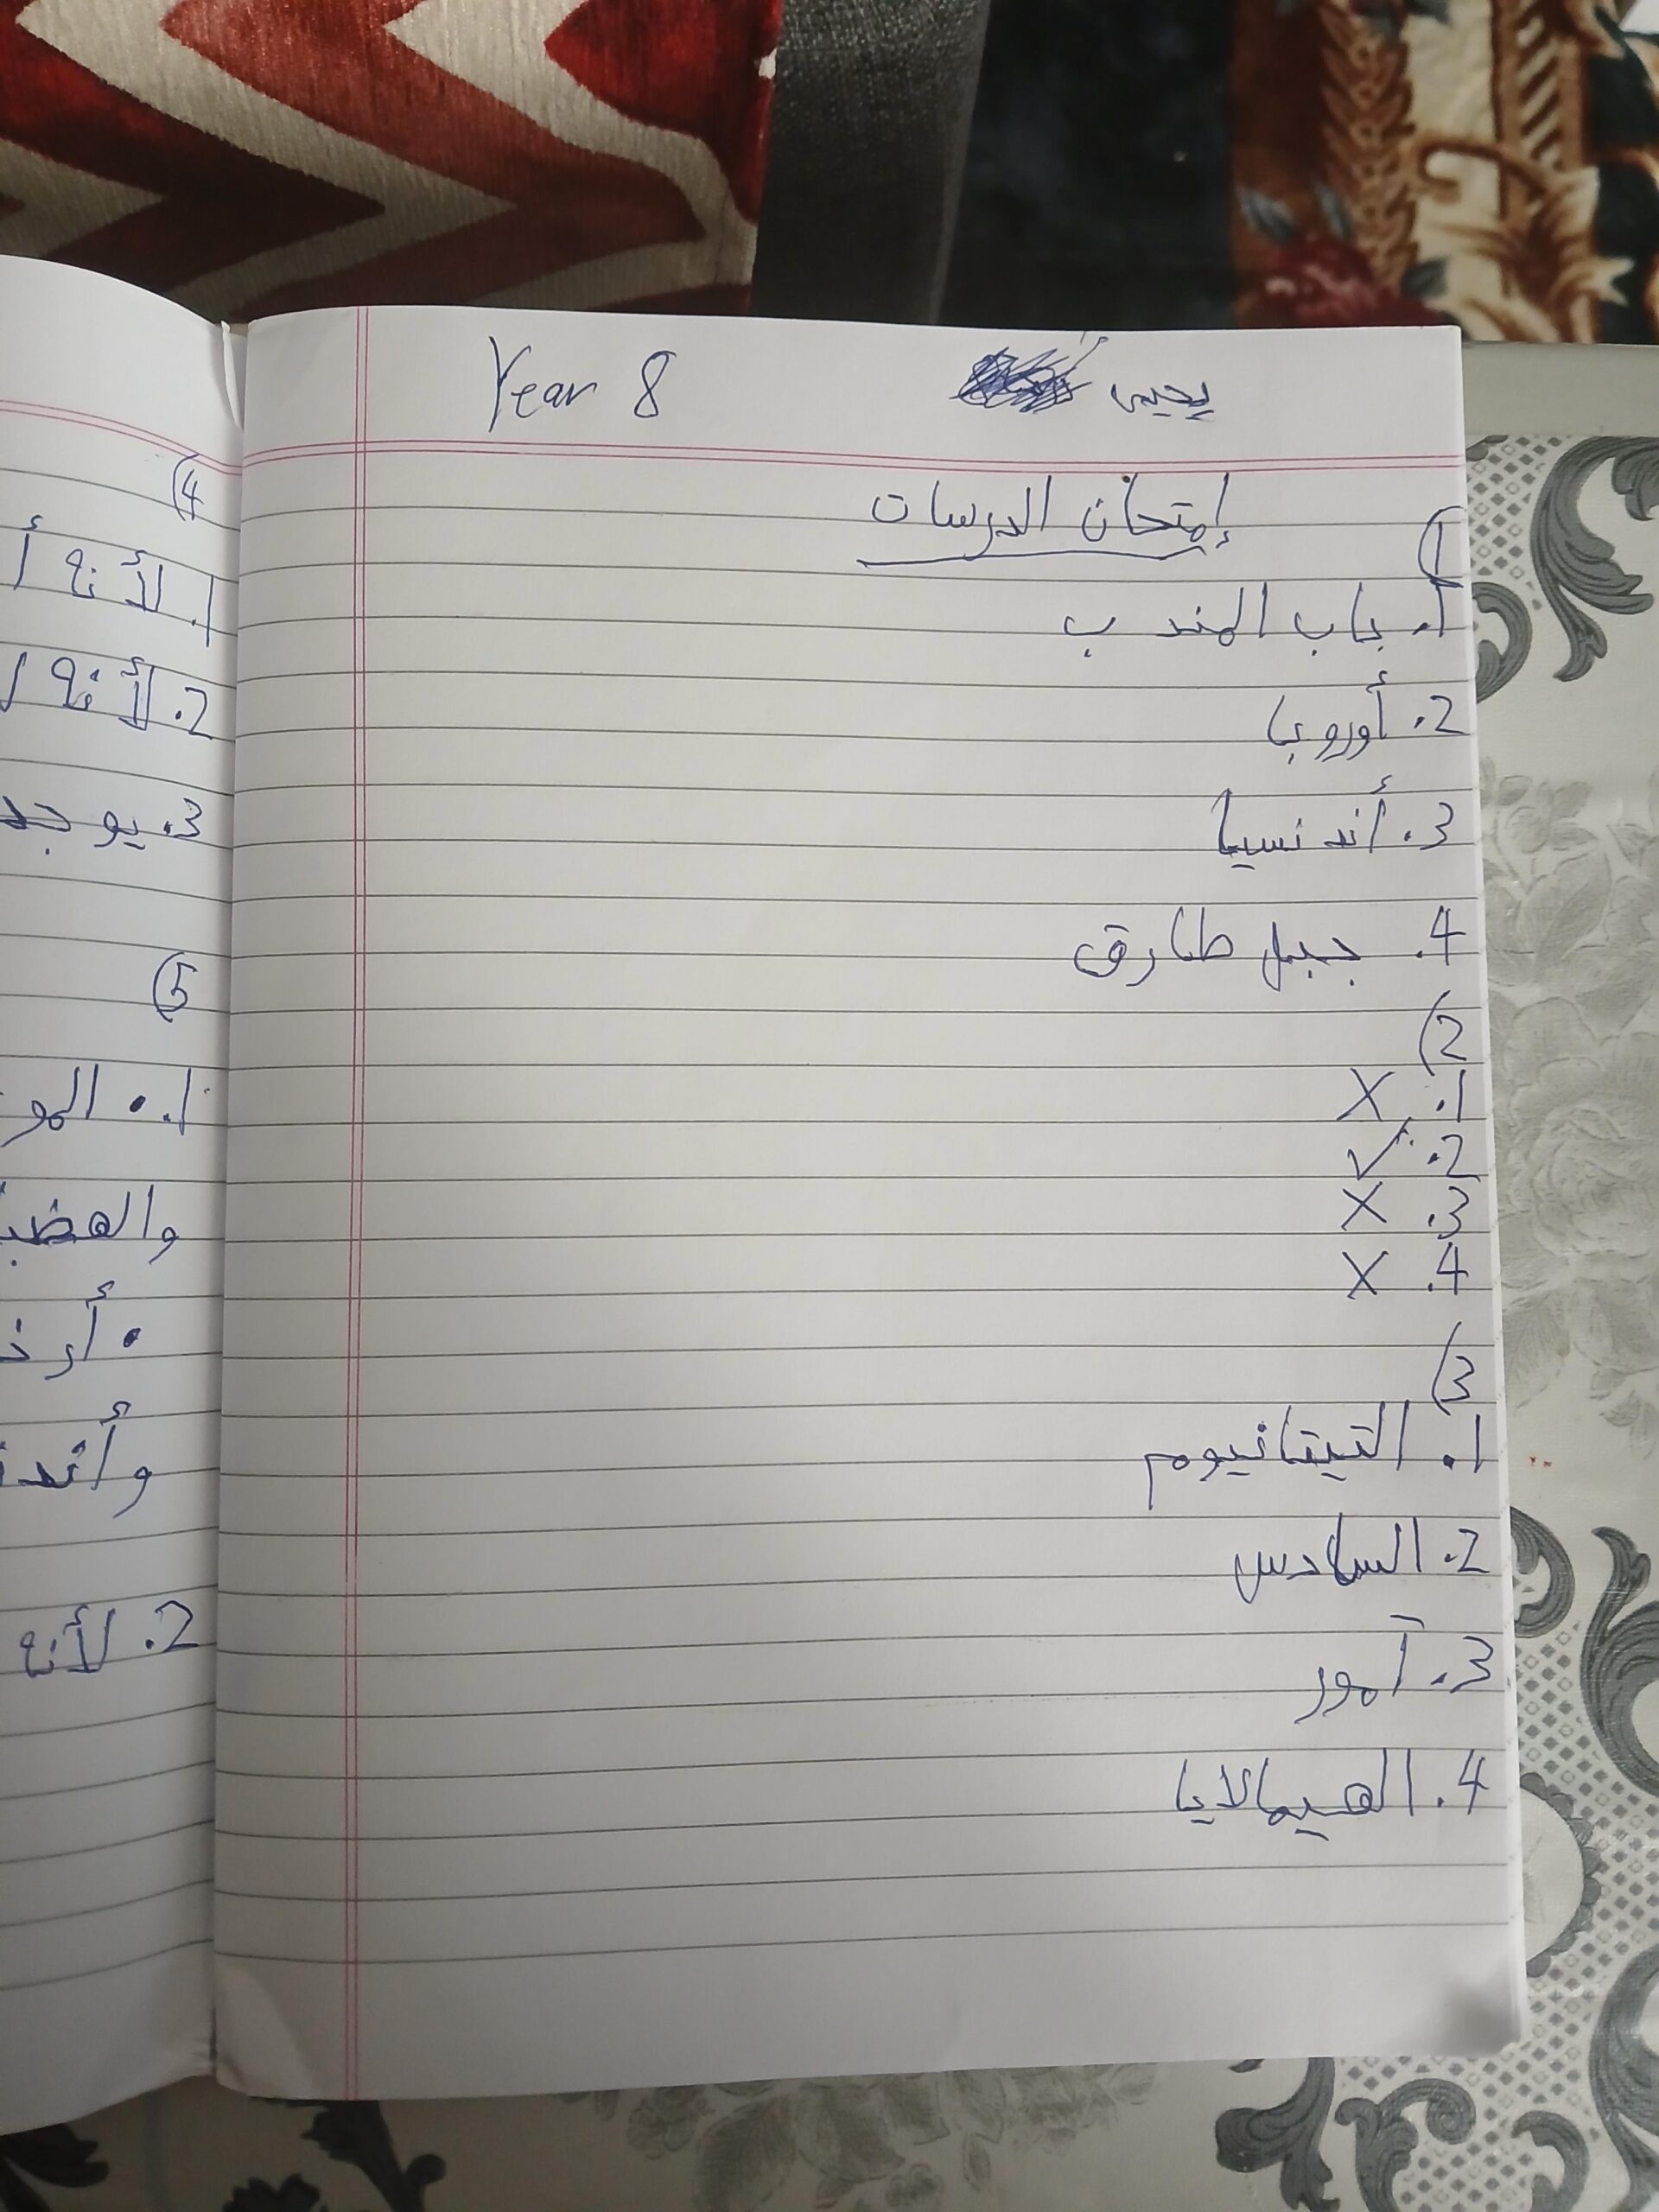 يحيى Year 8
إمتحان الدرسات
(1
1. باب المندب
2. أوروبا
3. أندنسيا
4. جبل طارق
(2
1. X
2. ✓
3. X
4. X
(3
1. التيتانيوم
2. السادس
3. آمور
4. الهيمالايا
(4
1. لأنه أ
2. لأنه
3. يوجد
(5
1. • المو
والهضب
• أر
وأند
2. لأنه